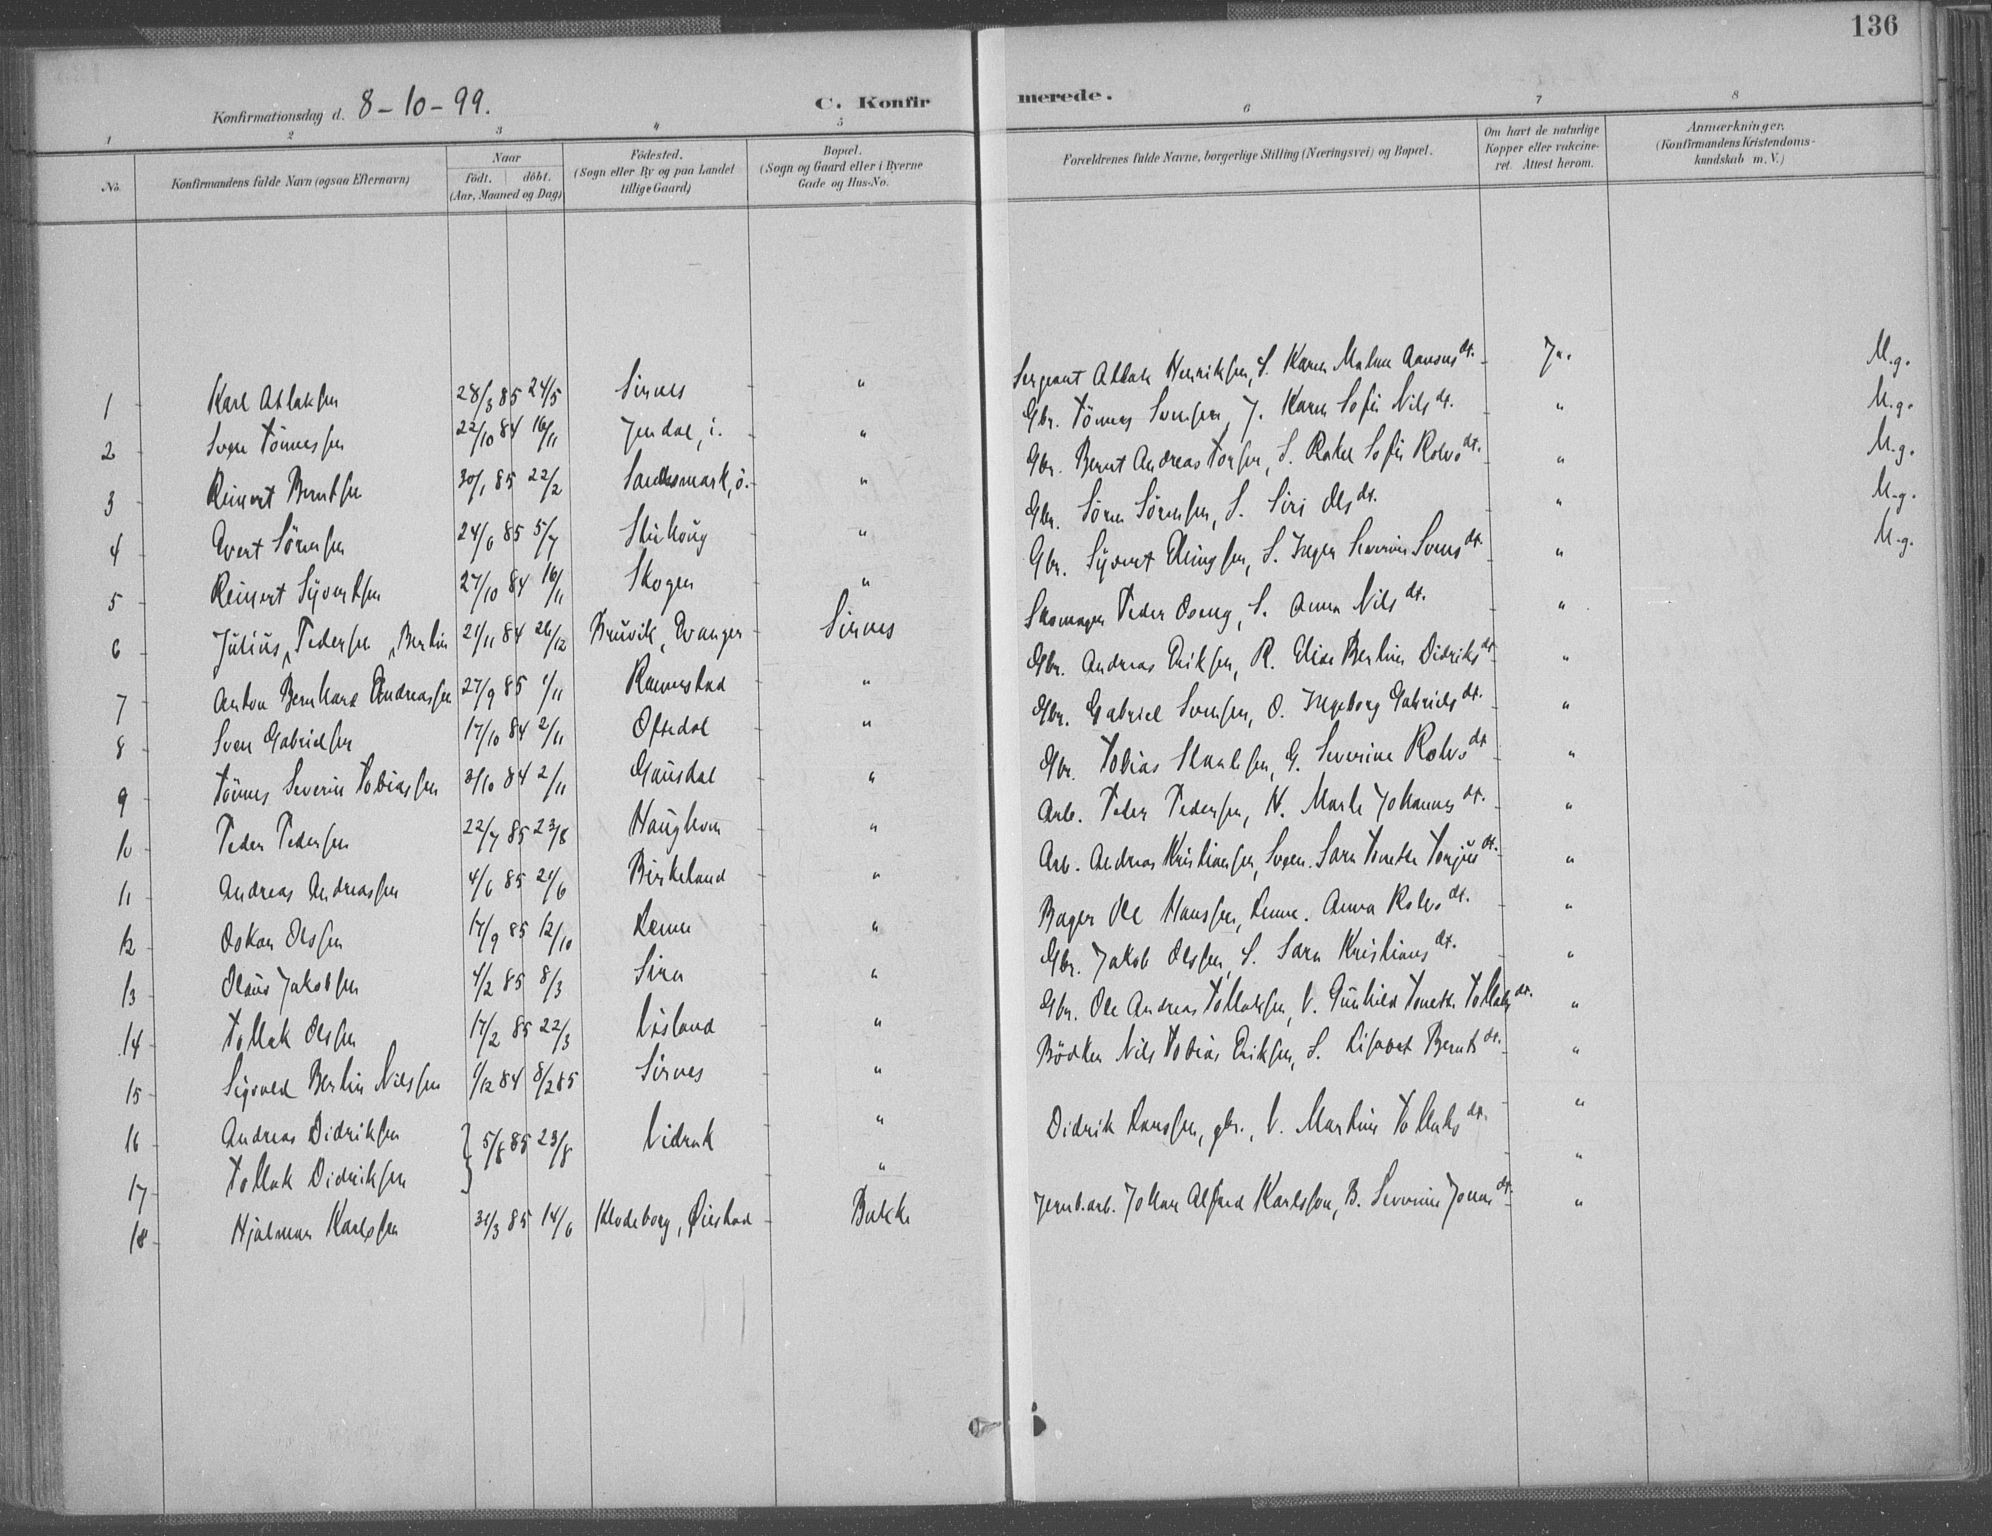 136
Konfirmationsdag d. 8-10-99.
C. Konfirmerede.
1 2 3 4 5 6 7 8
No. Konfirmandens fulde Navn (ogsaa Efternavn) Naar födt. döbt. (Aar, Maaned og Dag) Födested. (Sogn eller By og paa Landet tillige Gaard) Bopæl. (Sogn og Gaard eller i Byerne Gade og Hus-No. Forældrenes fulde Navne, borgerlige Stilling (Næringsvei) og Bopæl. Om havt de naturlige Kopper eller vakcineret. Attest herom. Anmærkninger. (Konfirmandens Kristendomskundskab m. V.)
1 Karl Atlaksen 28/3 85 24/5 Sirnes " Sergeant Atlak Henriksen, S. Karen Malene dt. Ja. M.g.
2 Sven Tönnessen 22/10 84 16/11 Jendal, i. " Gbr. Tönnes Svensen, J. Karen Sofie Nilsdt. " M.g.
3 Reinert Berntsen 30/1 85 22/2 Sandsmark, ö. " Gbr. Bernt Andreas Torsen, S. Rakel Sofie Rolvsdt. " M.g.
4 Evert Sörensen 24/6 85 5/7 " Gbr. Sören Sörensen, S. Siri Olsdt. " M.g.
5 Reinert Syvertsen 27/10 84 16/11 Skogen " Gbr. Syvert Elingsen, S. Inger Severine Svensdt. " M.g.
6 Julius, Pedersen, Bertin 21/11 84 26/12 Bruvik, Evanger Sirnes Skomager Peder Oseng, S. Anna Nilsdt. "
7 Anton Bernhard Andreassen 27/9 85 1/11 Ravnestad " Gbr. Andreas Eriksen, R. Elise Bertine Didriksdt. "
8 Sven Gabrielsen 17/10 84 2/11 Oftedal " Gbr. Gabriel Svensen, O. Ingeborg Gabrielsdt. "
9 Tönnes Severin Tobiassen 3/10 84 2/11 Gausdal " Gbr. Tobias G. Severine Rolvsdt. "
10 Peder Pedersen 22/7 85 23/8 Haughom " Arb. Peder Pedersen, H. Marte Johannesdt. "
11 Andreas Andreassen 4/6 85 21/6 Birkeland " Arb. Andreas Kristiansen, Sara Tonette Torjusdt. "
12 Oskar Olsen 17/9 85 12/10 " Bager Ole Hanssen, Anna Rolvsdt. "
13 Olaus Jakobsen 4/2 85 8/3 Sira " Gbr. Jakob Olssen, S. Sara Kristiansdt. "
14 Tollak Olsen 17/2 85 22/3 " Gbr. Ole Andreas Tollaksen, V. Gunhild Tonette Tollaksdt. "
15 Sigvald Bertin Nilssen 1/12 84 8/2 85 Sirnes " Bödker Nils Tobias Eriksen, S. Lisabet Berntsdt. "
16 Andreas Didriksen } 5/8 85 23/8 Vidrak " Didrik Larssen, gbr., V. Martine Tollaksdt. "
17 Tollak Didriksen } " "
18 Hjalmar Karlsen 31/3 85 14/6 Klodeborg, Øiestad Bakke Jernb.arb. Johan Alfred Karlsson, B. Severine Jonasdt. "